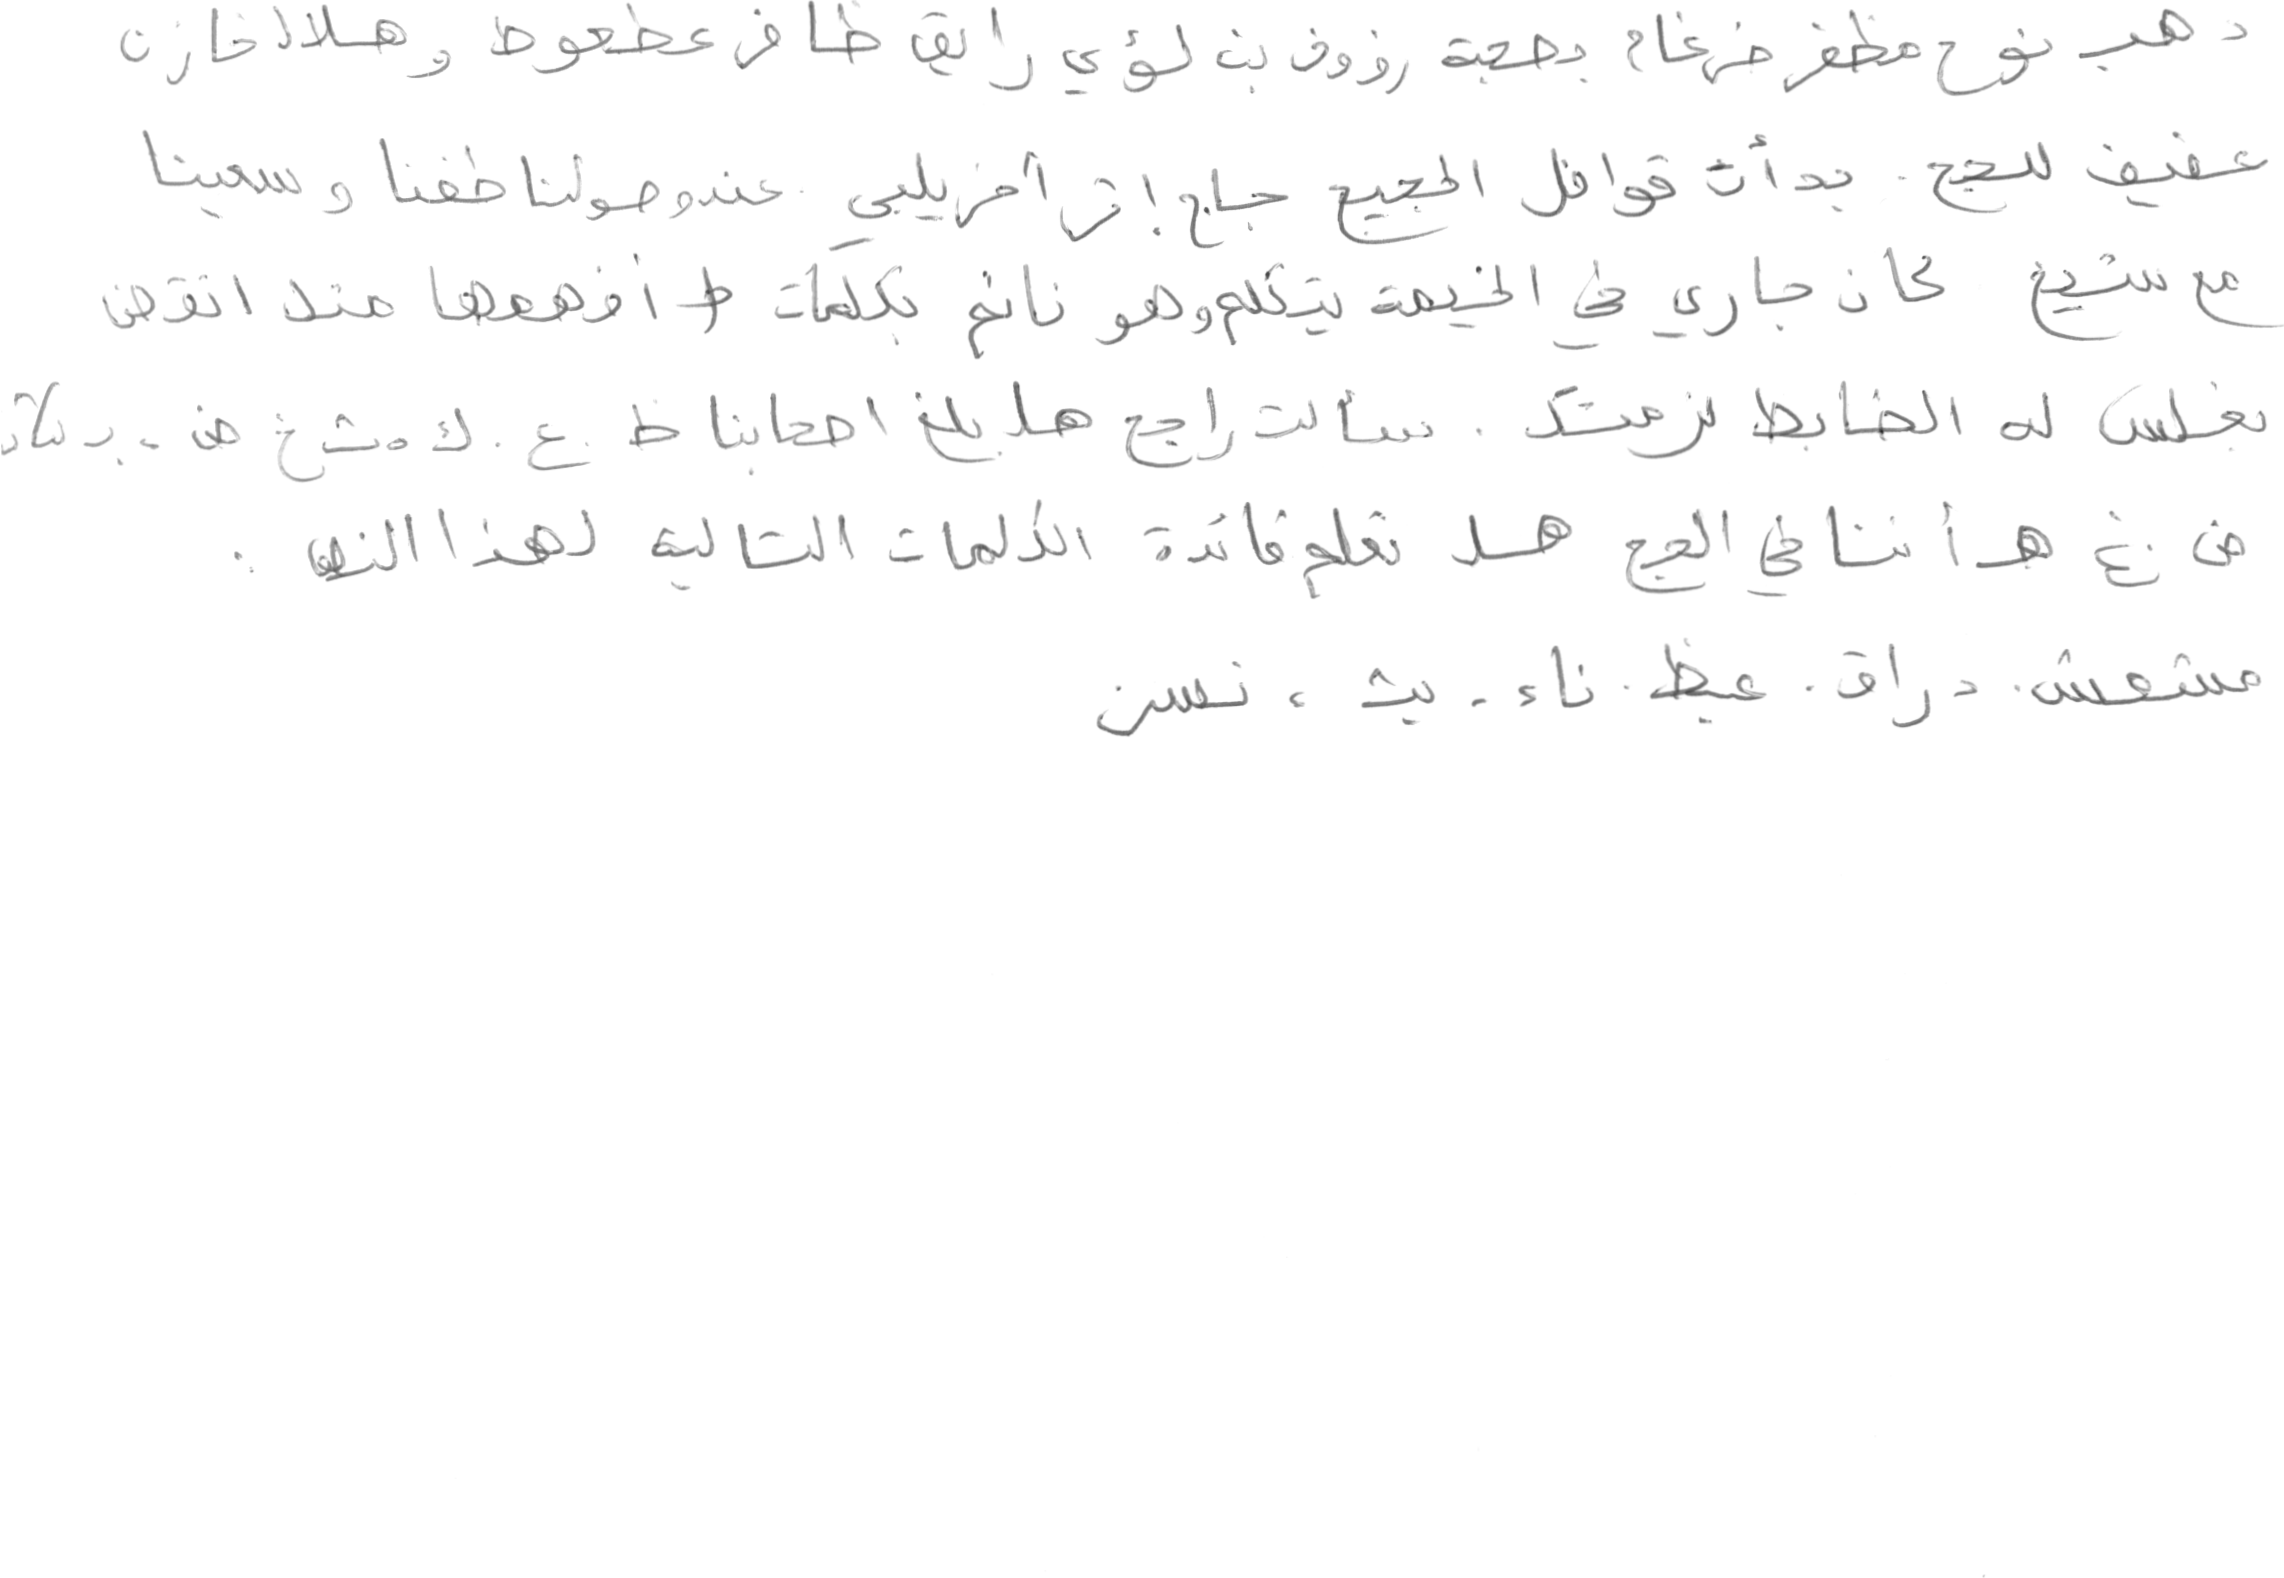 ذهب نوح مظفر ضرغام بصحبة رؤوف بن لؤي رايق ظافر عطعوط و هلال خازن
عفيف للحج. بدأت قوافل الحجيج حاج إثر آخر يلبي. عند وصولنا طفنا و سعينا
مع شيخ كان جاري في الخيمة يتكلم وهو نائم بكلمات لا أفهمها مثل انقض
بغلس له الضابط بزعتك. سألت راجح هل بلغ اصحابنا ظ. ع. ك ه ث خ ض. د بلاد
ض غ هـ أننا في الحج هل تعلم فائدة الكلمات التالية لهذا النص :
مشمش. دراق. غيظ. ناء. يث ، نسن